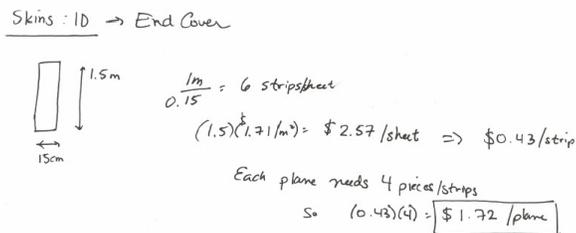 Skins : 1D → End Cover
1.5m
15cm
1m/0.15 = 6 strips/sheet
(1.5)($1.71/m²) = $2.57/sheet => $0.43/strip
Each plane needs 4 pieces/strips
So (0.43)(4) = $1.72/plane